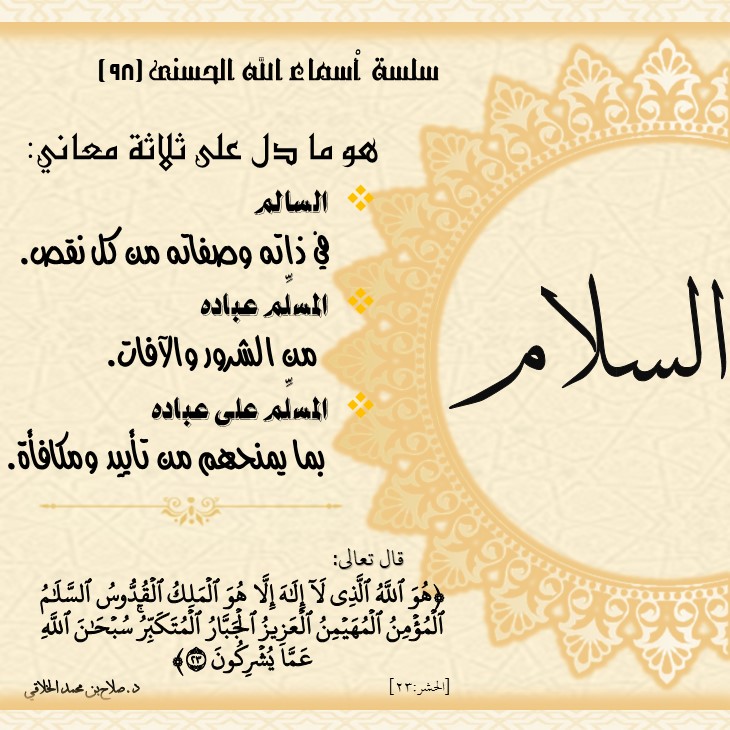 سلسة أسماء الله الحسنى (٩٨)
السلام
هو ما دل على ثلاثة معاني:
السالم
في ذاته وصفاته من كل نقص.
المسلِّم عباده
من الشرور والآفات.
المسلِّم على عباده
بما يمنحهم من تأييد ومكافأة.
قال تعالى:
﴿هُوَ ٱللَّهُ ٱلَّذِى لَآ إِلَـٰهَ إِلَّا هُوَ ٱلْمَلِكُ ٱلْقُدُّوسُ ٱلسَّلَـٰمُ
ٱلْمُؤْمِنُ ٱلْمُهَيْمِنُ ٱلْعَزِيزُ ٱلْجَبَّارُ ٱلْمُتَكَبِّرُ ۚ سُبْحَـٰنَ ٱللَّهِ
عَمَّا يُشْرِكُونَ ٢٣﴾
[الحشر:٢٣]
د.صلاح بن محمد الخلاقي